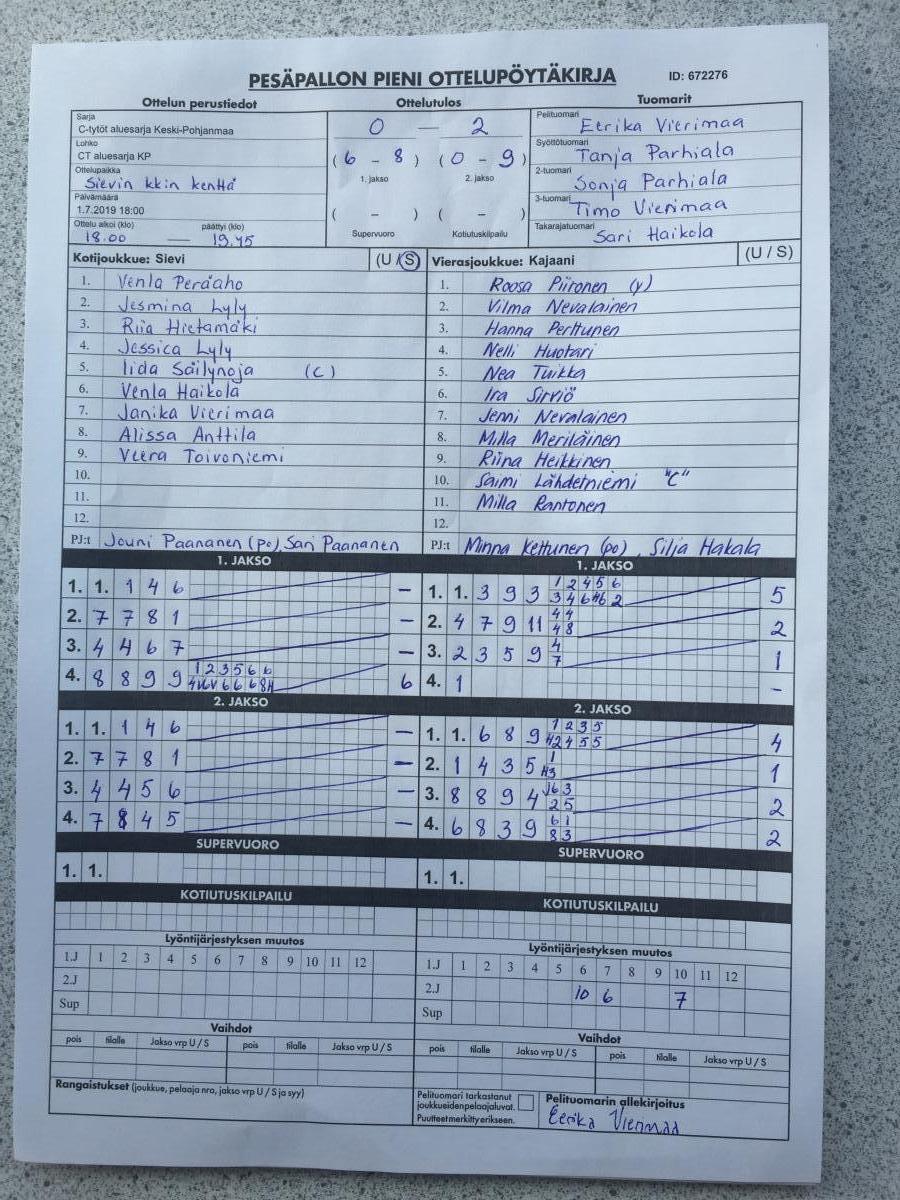 PESÄPALLON PIENI OTTELUPÖYTÄKIRJA ID: 672276
Ottelun perustiedot Ottelutulos Tuomarit
Sarja
C-tytöt aluesarja Keski-Pohjanmaa
Lohko
CT aluesarja KP
Ottelupaikka
Sievin kkin kenttä
Päivämäärä
1.7.2019 18:00
Ottelu alkoi (klo) päättyi (klo)
18.00 — 19.45
0 — 2
(6 - 8) (0 - 9)
1. jakso 2. jakso
( - ) ( - )
Supervuoro Kotiutuskilpailu
Pelituomari Eerika Vierimaa
Syöttötuomari Tanja Parhiala
2-tuomari Sonja Parhiala
3-tuomari Timo Vierimaa
Takarajatuomari Sari Haikola
Kotijoukkue: Sievi (U / S)
1. Venla Peräaho
2. Jesmina Lyly
3. Riia Hietamäki
4. Jessica Lyly
5. Iida Säilynoja (C)
6. Venla Haikola
7. Janika Vierimaa
8. Alissa Anttila
9. Veera Toivoniemi
10.
11.
12.
PJ:t Jouni Paananen (po), Sari Paananen
Vierasjoukkue: Kajaani (U / S)
1. Roosa Piironen (v)
2. Vilma Nevalainen
3. Hanna Perttunen
4. Nelli Huotari
5. Nea Tuikka
6. Ira Sirviö
7. Jenni Nevalainen
8. Milla Meriläinen
9. Riina Heikkinen
10. Saimi Lähdetniemi "C"
11. Milla Rantonen
12.
PJ:t Minna Kettunen (po), Silja Hakala
1. JAKSO
1. 1. 1 4 6 —
2. 7 7 8 1 —
3. 4 4 6 7 —
4. 8 8 9 9 1 2 3 5 6 6 6
2. JAKSO
1. 1. 1 4 6 —
2. 7 7 8 1 —
3. 4 4 5 6 —
4. 7 8 4 5 —
SUPERVUORO
1. 1.
KOTIUTUSKILPAILU
Lyöntijärjestyksen muutos
1.J 1 2 3 4 5 6 7 8 9 10 11 12
2.J
Sup
Vaihdot
pois tilalle Jakso vrp U / S pois tilalle Jakso vrp U / S
Rangaistukset (joukkue, pelaaja nro, jakso vrp U / S ja syy)
1. JAKSO
1. 1. 3 9 3 1 2 4 5 6 5
2. 4 7 9 11 4 4 4 8 2
3. 2 3 5 9 4 7 1
4. 1 -
2. JAKSO
1. 1. 6 8 9 1 2 3 5 4
2. 1 4 3 5 1 1
3. 8 8 9 4 2 5 2
4. 6 8 3 9 6 1 8 3 2
SUPERVUORO
1. 1.
KOTIUTUSKILPAILU
Lyöntijärjestyksen muutos
1.J 1 2 3 4 5 6 7 8 9 10 11 12
2.J 10 6 7
Sup
Vaihdot
pois tilalle Jakso vrp U / S pois tilalle Jakso vrp U / S
Pelituomari tarkastanut
joukkueiden pelaajaluvat.
Puutteet merkitty erikseen.
Pelituomarin allekirjoitus
Eerika Vierimaa